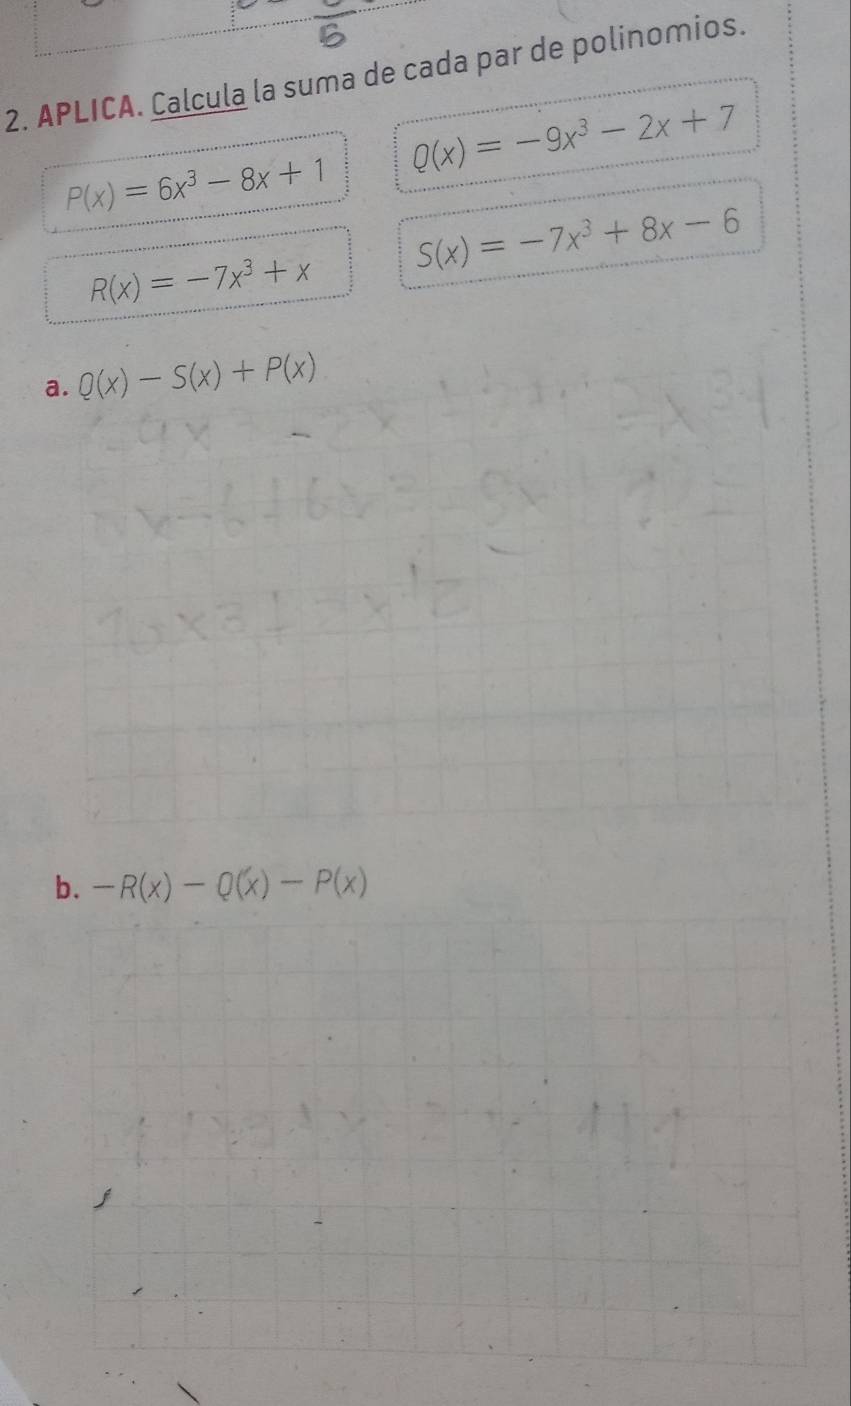 6
2. APLICA. Calcula la suma de cada par de polinomios.
P(x) = 6x³ − 8x + 1
Q(x) = −9x³ − 2x + 7
R(x) = −7x³ + x
S(x) = −7x³ + 8x − 6
a. Q(x) − S(x) + P(x)
b. −R(x) − Q(x) − P(x)